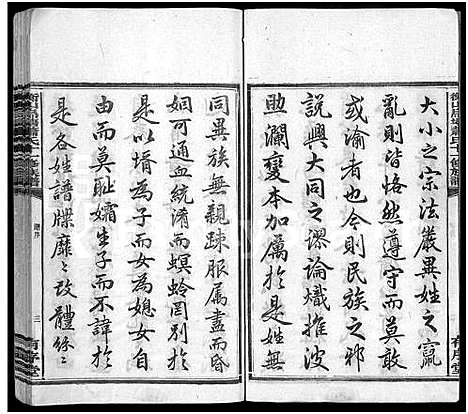 大小之宗法嚴異姓之竄
亂則皆恪然遵守而莫敢
或渝者也今則民族之邪
說興大同之謬論熾推波
助瀾變本加厲於是姓無
同異族無親疎服属盡而昏
姻可通血統淆而螟蛉罔别於
是以壻為子而女為媳女自
由而莫耻孀生子而不諱於
是各姓譜牒靡〻改體條〻
譜序
三
有序堂